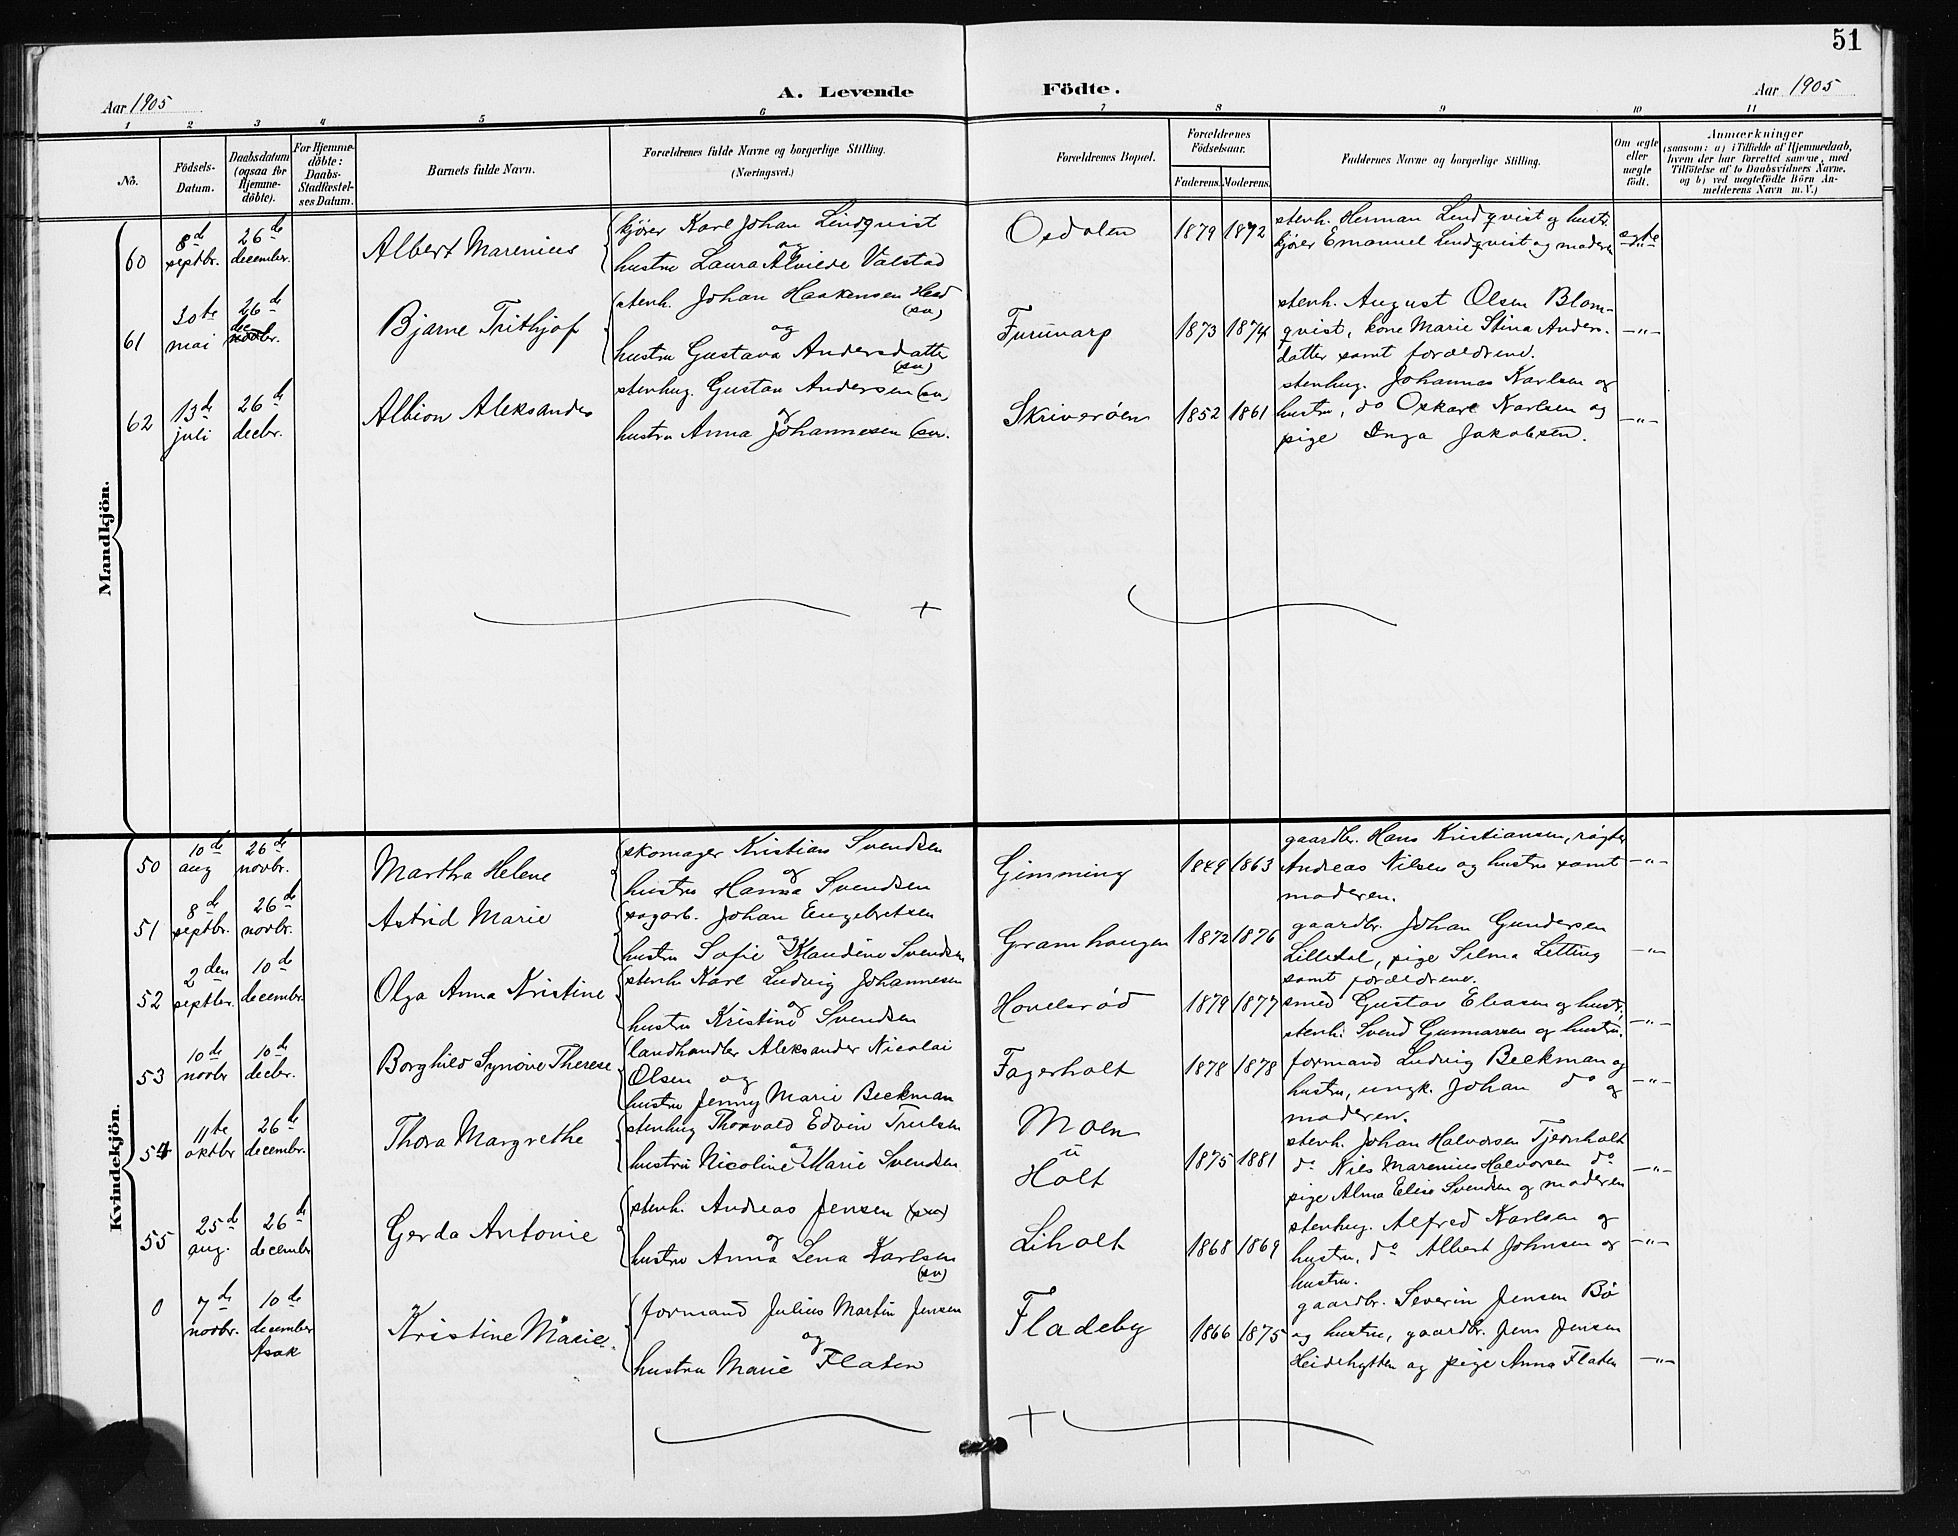 51
Aar 1905
A. Levende Födte.
Aar 1905
1 2 3 4 5 6 7 8 9 10 11
No.
Födsels-
Datum.
Daabsdatum
(ogsaa for
Hjemme-
döbte).
For Hjemme-
döbte:
Daabs-
Stadfæstel-
ses Datum.
Barnets fulde Navn.
Forældrenes fulde Navne og borgerlige Stilling.
(Næringsvei.)
Forældrenes Bopæl.
Forældrenes
Födselsaar.
Faderens. Moderens.
Faddernes Navne og borgerlige Stilling.
Om ægte
eller
uægte
födt.
Anmærkninger
(saasom: a) i Tilfælde af Hjemmedaab,
hvem der har forrettet samme, med
Tilföielse af to Daabsvidners Navne,
og b) ved uægtefödte Börn An-
melderens Navn m. V.)
Mandkjön.
60
8d
septbr.
26de
december.
Albert Marenius
kjører Karl Johan Lindqvist
og
hustru Laura Alvilde Valstad
Osdalen
1879 1872
stenh. Herman Lindqvist og hustr.
kjører Emanuel Lindqvist og moderen
ægte
61
30te
mai
26de
dec
novbr.
Bjarne Trithjof
stenh. Johan Haakensen Hed
(sv)
og
hustru Gustava Andersdatter
(sv)
Furuvarp
1873 1874
stenh. August Olsen Blom-
qvist, kone Marie Stina Anders-
datter samt forældrene.
—"—
62
13de
juli
26de
decbr.
Albion Aleksander
stenhug. Gustav Andersen (sv
og
hustru Anna Johannesen (sv.
Skriverøen
1852 1861
stenhug. Johannes Karlsen og
hustru, do Oskar Karlsen og
pige Inga Jakobsen.
—"—
Kvindekjön.
50
10de
aug
26de
novbr.
Martha Helene
skomager Kristian Svendsen
og
hustru Hanna Svendsen
Gimming
1849 1863
gaardbr. Hans Kristiansen, røgter
Andreas Nilsen og hustru samt
moderen.
—"—
51
8de
septbr.
26de
novbr.
Astrid Marie
sagarb. Johan Engebretsen
og
hustru Sofie Klaudine Svendsen
Gramhaugen
1872 1876
gaardbr. Johan Gundersen
Lilledal, pige Selma Letting
samt forældrene.
—"—
52
2den
septbr.
10de
decembr.
Olga Anna Kristine
stenh. Karl Ludvig Johannesen
og
hustru Kristine Svendsen
Hovelsrød
1879 1877
smed Gustav Eliasen og hustr.,
stenh. Svend Gunnarsen og hustru.
—"—
53
10de
novbr
10de
decbr.
Borghild Synøve Therese
landhandler Aleksander Nicolai
Olsen og
hustru Jenny Marie Beckman
Fagerholt
1878 1878
formand Ludvig Beckman og
hustru, ungk. Johan do og
moderen.
—"—
54
11te
oktbr
26de
decembr.
Thora Margrethe
stenhug Thorvald Edvin Trulsen
og
hustru Nicoline Marie Svendsen
Moen
u
Holt
1875 1881
stenh. Johan Halvorsen Tjernholt
do Nils Marenius Halvorsen do
pige Alma Elise Svendsen og moderen
—"—
55
25d
aug.
26de
december
Gerda Antonie
stenh. Andreas Jensen (sv)
og
hustru Anna Lena Karlsen
(sv)
Liholt
1868 1869
stenhug. Alfred Karlsen og
hustru, do Albert Johnsen og
hustru.
—"—
0
7de
novbr.
10de
december
Asak
Kristine Marie
formand Julius Martin Jensen
og
hustru Marie Flaten
Fladeby
1866 1875
gaardbr. Severin Jensen Bø
og hustru, gaardbr. Jens Jensen
Heidehytten og pige Anna Flaten
—"—